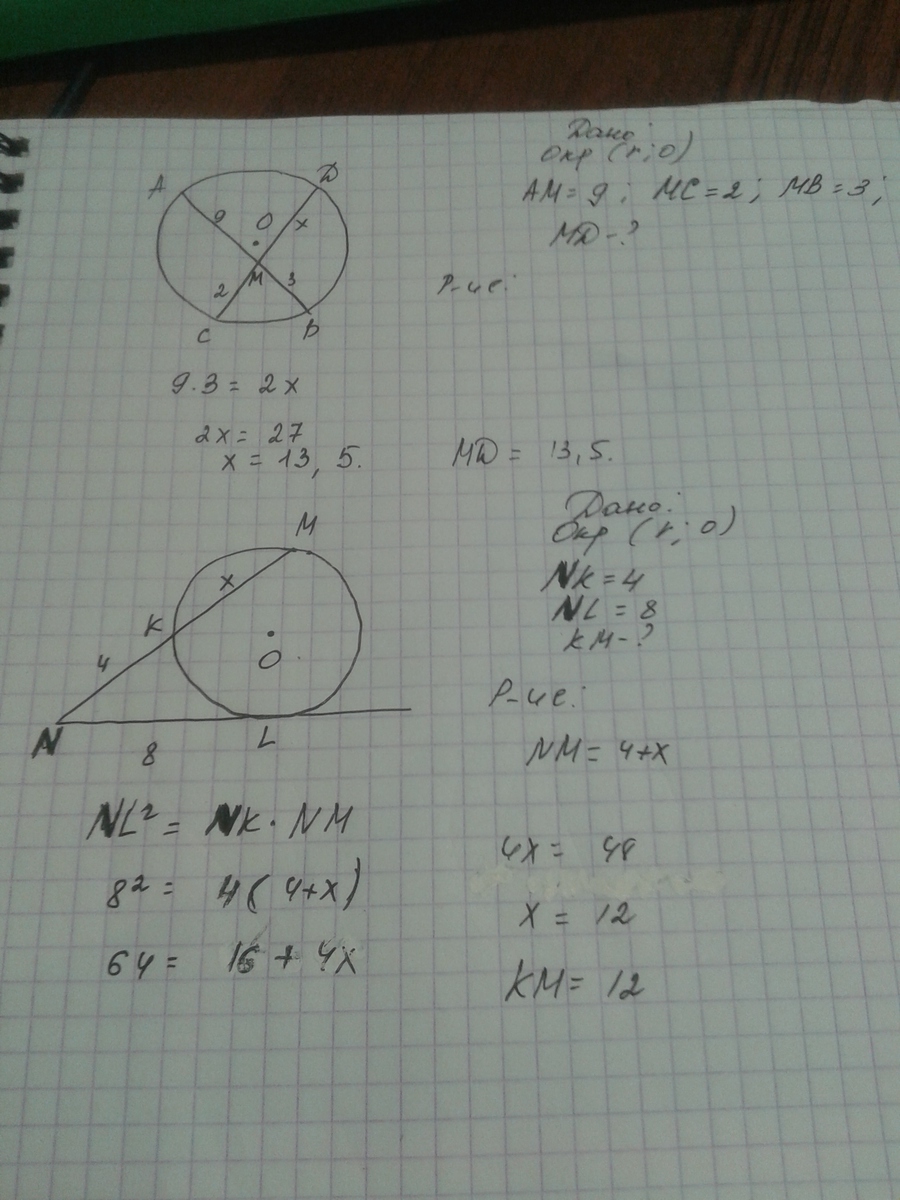 Дано:
Окр (r; O)
AM = 9 ; MC = 2 ; MB = 3 ;
MD - ?
A
D
9
O
x
M
2
3
C
B
Р-ие:
9 · 3 = 2x
2x = 27
x = 13,5.
MD = 13,5.
Дано:
Окр (r; O)
NK = 4
NL = 8
KM - ?
M
x
K
4
O
N
8
L
Р-ие:
NM = 4+x
NL² = NK · NM
8² = 4(4+x)
64 = 16 + 4x
4x = 48
x = 12
KM = 12